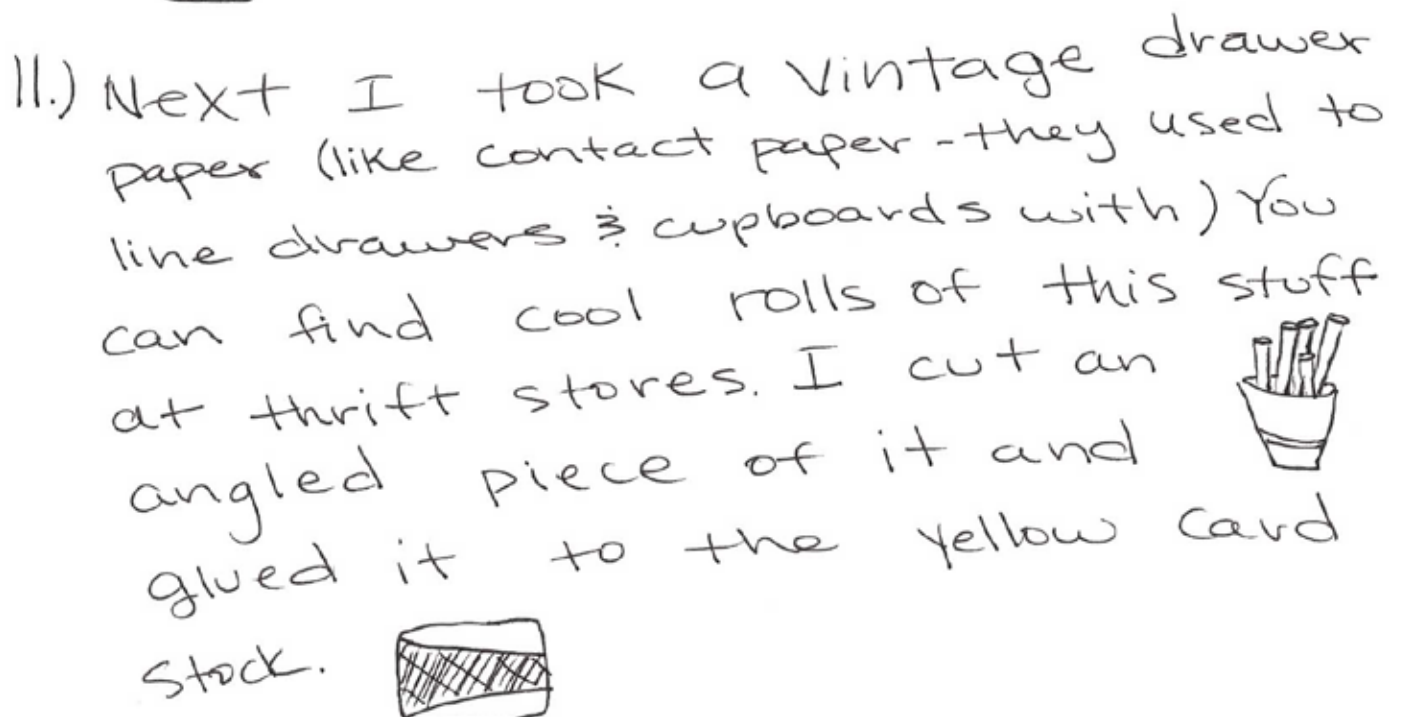 11.) Next I took a vintage drawer
paper (like contact paper - they used to
line drawers & cupboards with) You
can find cool rolls of this stuff
at thrift stores. I cut an
angled piece of it and
glued it to the yellow card
stock.